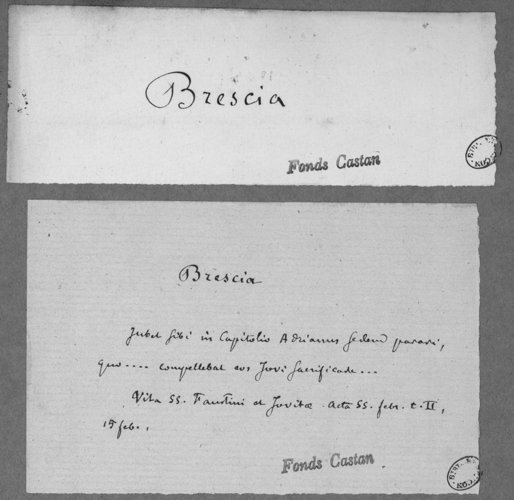 Brescia
Fonds Castan
Brescia
Jubet sibi in Capitolio Adrianus sedem parari,
quo .... compellebat eos Jovi sacrificare ...
Vita SS. Faustini et Jovitæ. Acta SS. febr. t. II,
15 febr.,
Fonds Castan